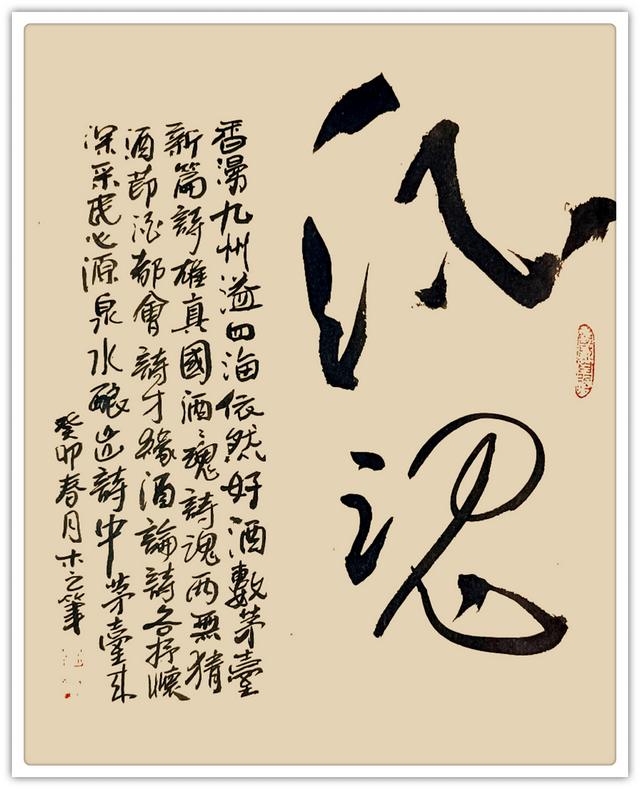 魂
香漫九州溢四海依然好酒數茅臺
新篇詩雄真國酒々魂詩魂两無猜
酒節酒都會詩才緣酒論詩各抒懷
深采民心源泉水釀造詩中茅臺来
癸卯春月木之筆